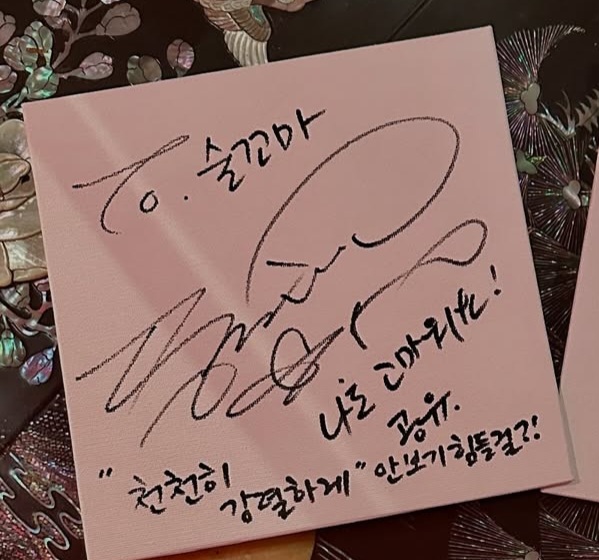 To. 술꼬마
나도 고마워요!
공유.
"천천히
강렬하게" 안보기힘들걸?!